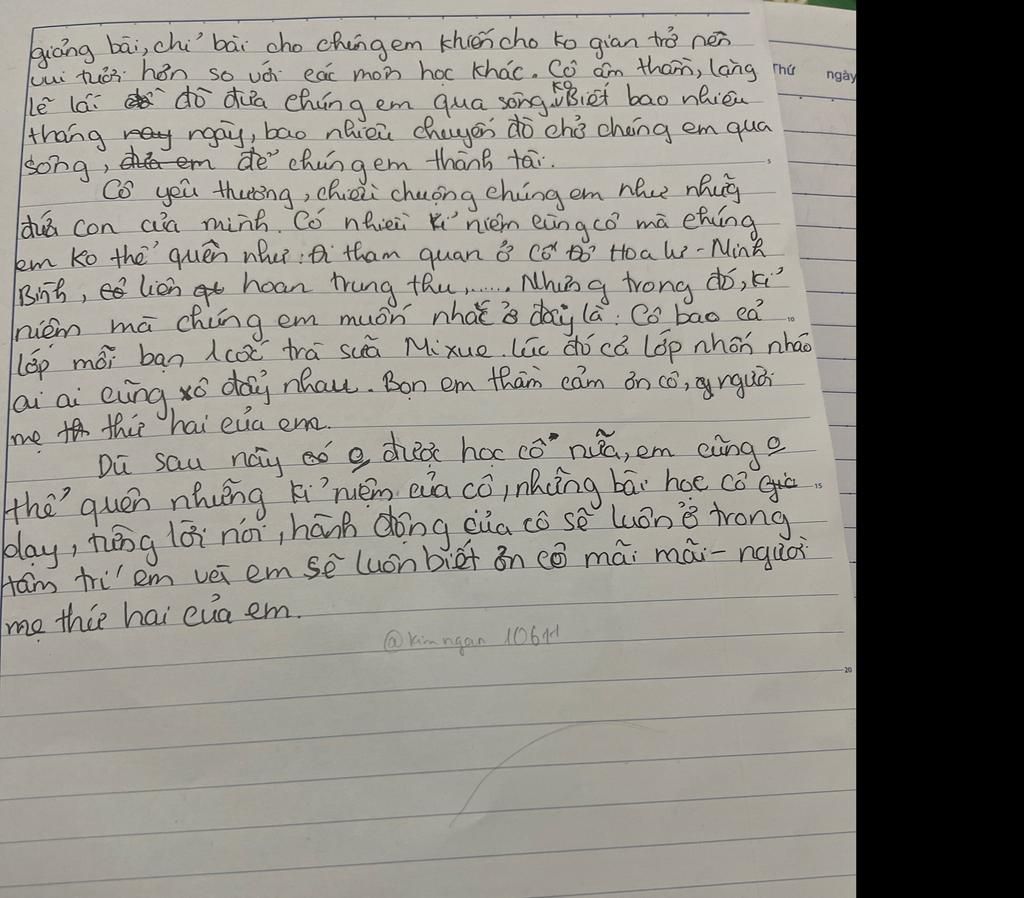 giảng bài, chỉ bài cho chúng em khiến cho ko gian trở nên
vui tươi hơn so với các môn học khác. Cô âm thầm, lặng
lẽ lái đò đưa chúng em qua sông. ko Biết bao nhiêu
tháng ngày, bao nhiêu chuyến đò chở chúng em qua
sông, đưa em để chúng em thành tài.
Cô yêu thương, chiều chuộng chúng em như những
đứa con của mình. Có nhiều kỉ niệm cùng cô mà chúng
em ko thể quên như: Đi tham quan ở Cố Đô Hoa Lư - Ninh
Bình, liên hoan trung thu,..... Nhưng trong đó, kỉ
niệm mà chúng em muốn nhắc ở đây là: Cô bao cả
lớp mỗi bạn 1 cốc trà sữa Mixue. Lúc đó cả lớp nhốn nháo
ai ai cũng xô đẩy nhau. Bọn em thầm cảm ơn cô, người
mẹ thứ hai của em.
Dù sau này có được học cô nữa, em cũng
thể quên những kỉ niệm của cô, những bài học cô
dạy, từng lời nói, hành động của cô sẽ luôn ở trong
tâm trí em và em sẽ luôn biết ơn cô mãi mãi - người
mẹ thứ hai của em.
@kimngan 10611
Thứ ngày
10
15
20